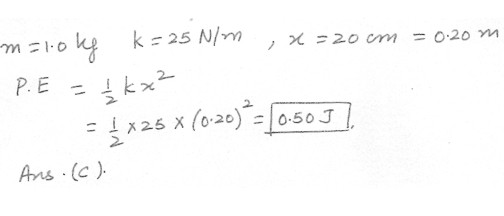 m = 1.0 kg k = 25 N/m , x = 20 cm = 0.20 m
P.E = 1/2 kx²
= 1/2 × 25 × (0.20)² = 0.50 J.
Ans. (C).